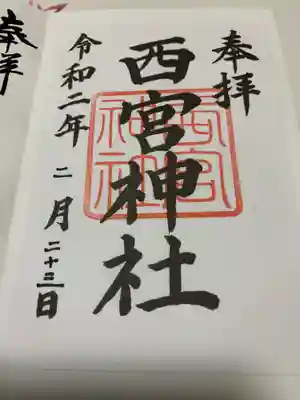 奉拝
西宮神社
西宮神社
令和二年 二月二十三日
奉拝